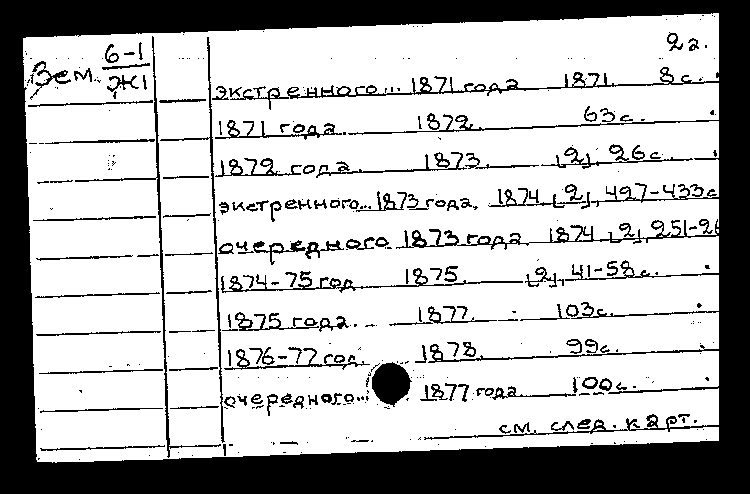 2а.
Зем. 6-1
Ж1
экстренного... 1871 года 1871. 8с.
1871 года. 1872. 63с.
1872 года. 1873. [2], 26с.
экстренного... 1873 года. 1874 [2], 427-433с
очередного 1873 года 1874 [2], 251-26
1874-75 год 1875. [2], 41-58с.
1875 года. 1877. 103с.
1876-77 год. 1878. 99с.
очередного... 1877 года 100с.
см. след. карт.